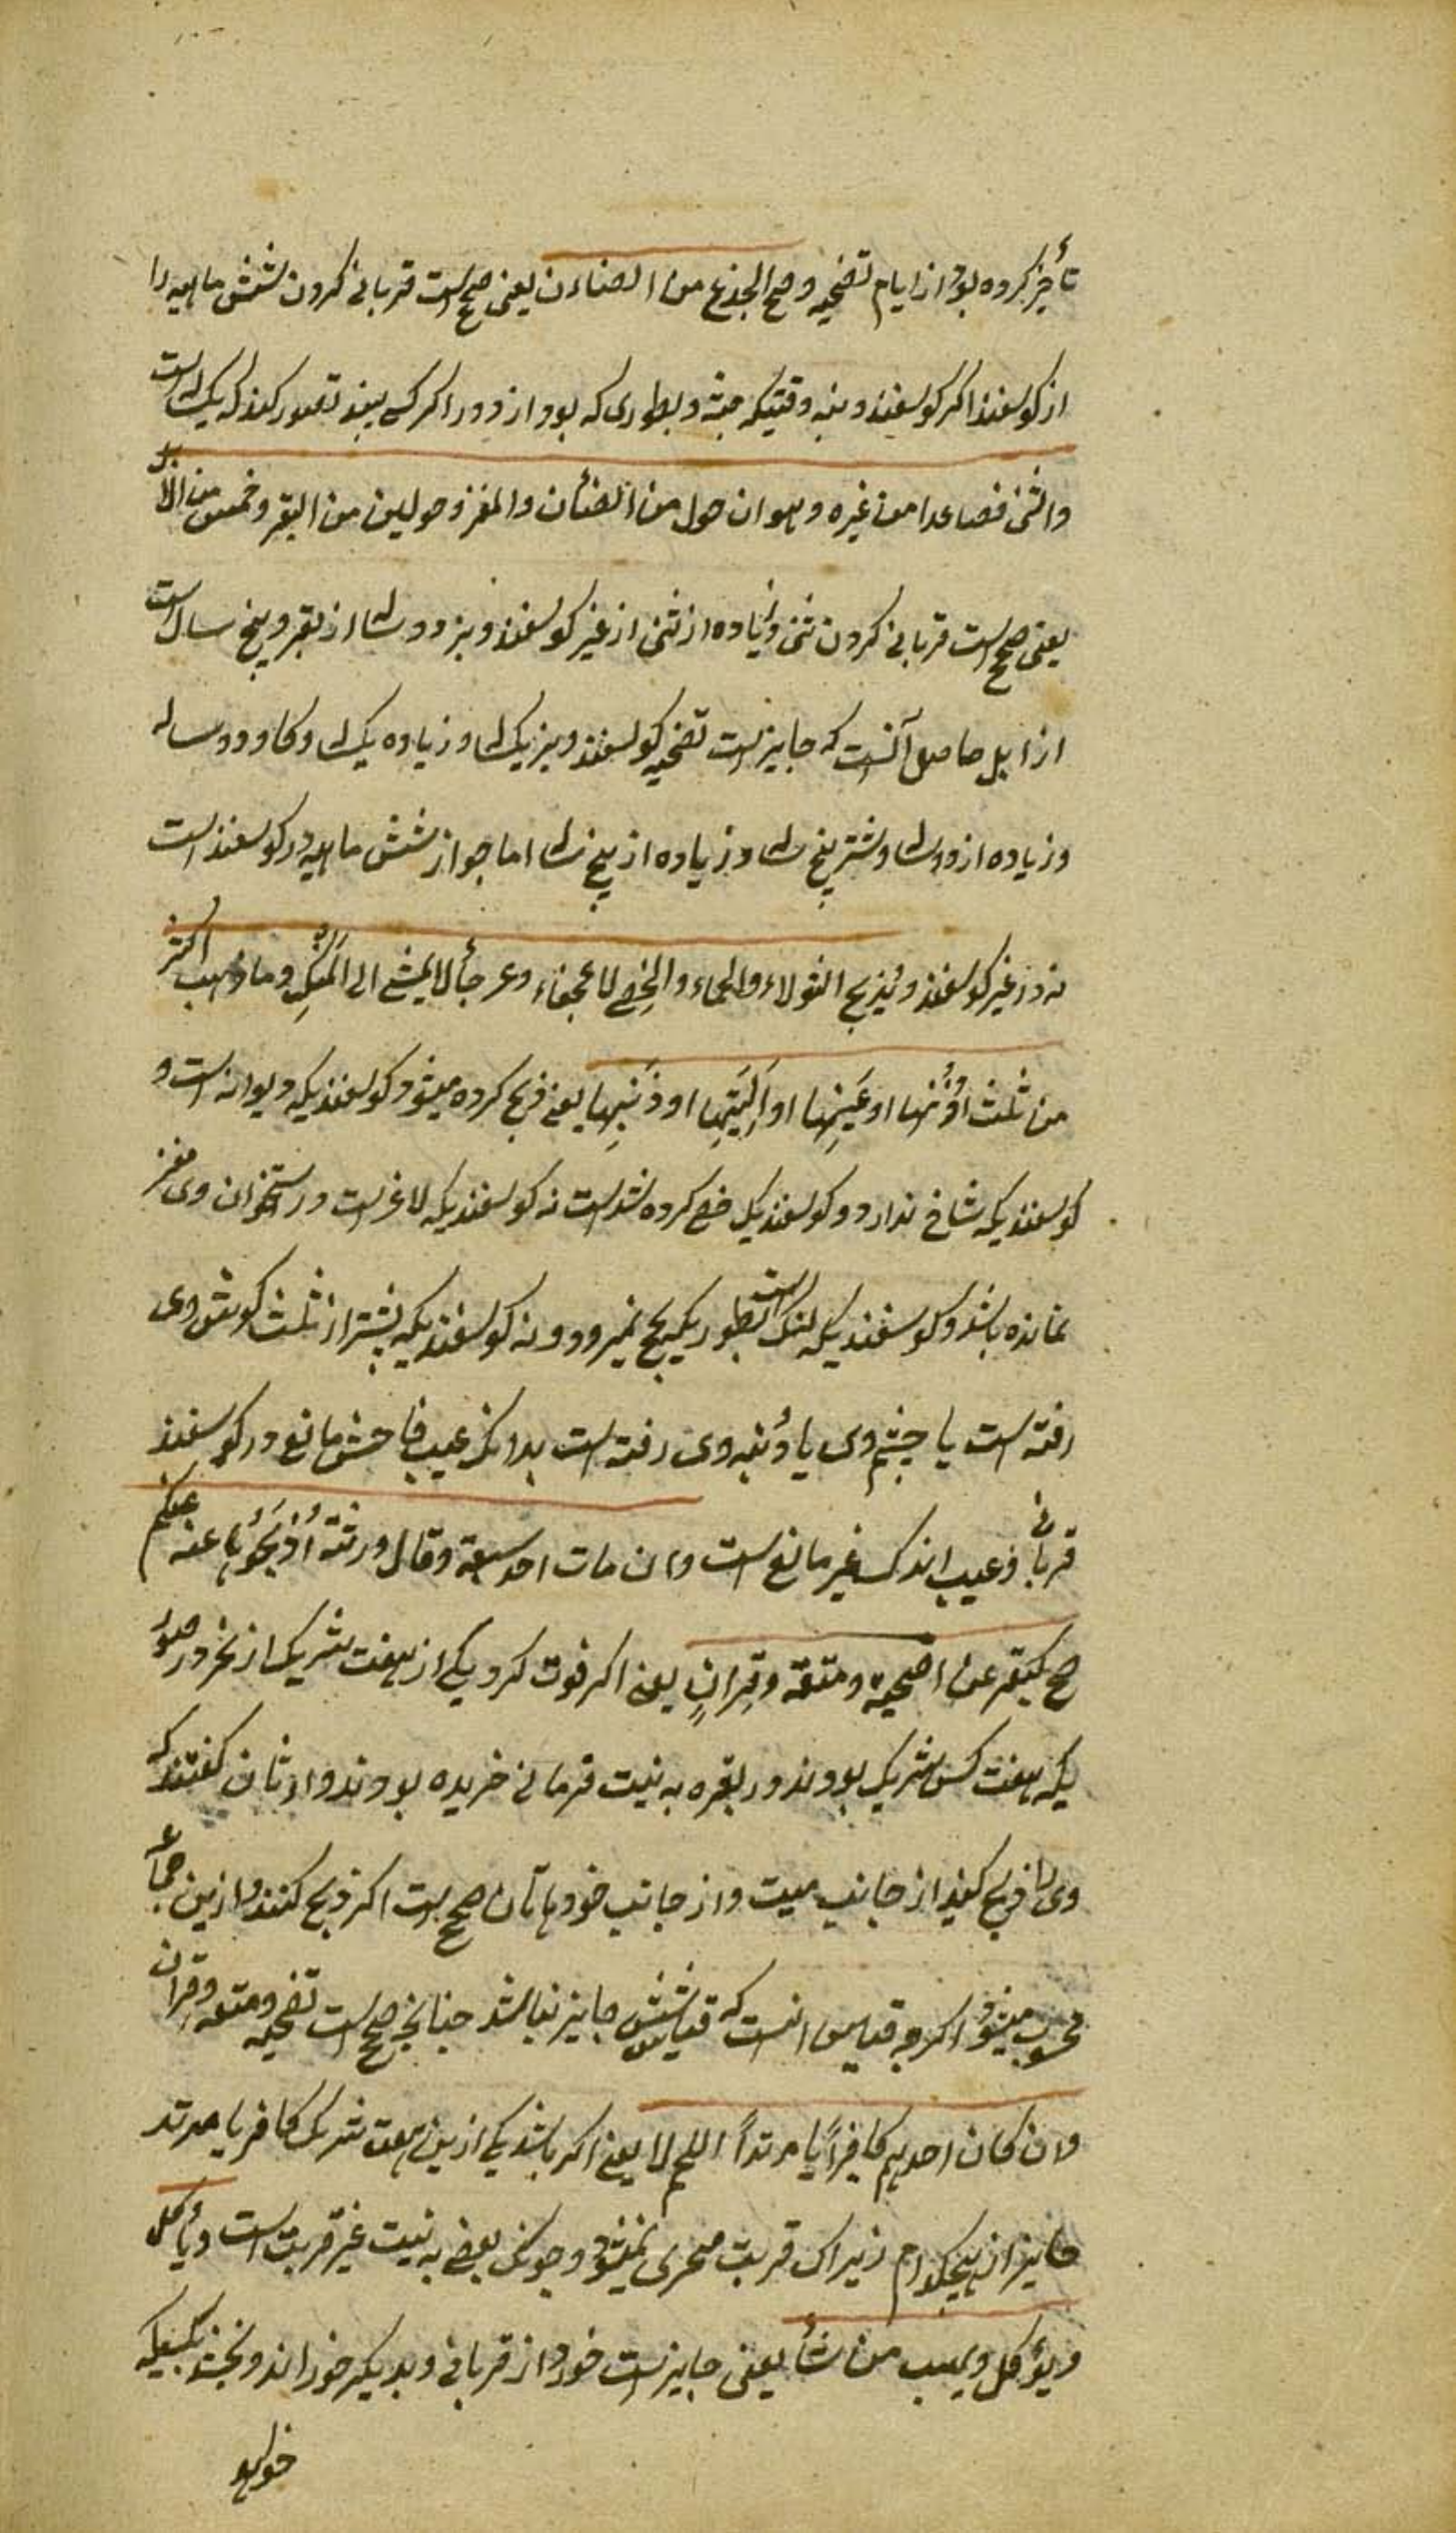 تأخیر کرده بود از ایام تضحیه و صح الجذع من الضاءن یعنی صحیح است قربانی کردن شش ماهه را
از کوسفند اکر کوسفند دنبه وقتیکه جثه و بطوری که بود از دور اکر کسی بیند تصور کند که یک ساله است
والثنی فصاعدا من غیره و هو ابن حول من الضأن والمعز و حولین من البقر و خمس من الابل
یعنی صحیح است قربانی کردن ثنی و زیاده از ثنی از غیر کوسفند و بز دو ساله از بقر و پنج ساله است
از ابل حاصل آنست که جایز است تضحیه کوسفند و بز یک ساله و زیاده یک ساله و کاو دو ساله
و زیاده از دو ساله و شتر پنج ساله و زیاده از پنج ساله اما جواز شش ماهه در کوسفند است
نه در غیر کوسفند و یذبح الثولاء والجماء والخصی لا عجفاء و عرجأ لا یمشی الی المنسک و ما ذهب اکثر
من ثلث اذنها او عینها او الیتها او ذنبها یعنی ذبح کرده میشود کوسفندیکه دیوانه است و
کوسفندیکه شاخ ندارد و کوسفندیکه خصی کرده شده است نه کوسفندیکه لاغر است و در استخوان وی مغز
نمانده باشد و کوسفندیکه لنک است بطوریکه هیچ نمیرود و نه کوسفندیکه بیشتر از ثلث کوش وی
رفته است یا چشم وی یا دنبه وی رفته است بدانکه عیب فاحش مانع در کوسفند
قربانی و عیب اندک غیر مانع است وان مات احد سبعة وقال ورثته اذبحوها عنه و عنکم
صح کبقر عن اضحیة و متعة و قران یعنی اکر فوت کرد یکی از هفت شریک از نحر در صور
یکه هفت کس شریک بودند در بقره به نیت قربانی خریده بودند وارثان کفتند که
وی را ذبح کنید از جانب میت و از جانب خودهاتان صحیح است اکر ذبح کنند و ازین جماع
محسوب میشود اکرچه قیاس انست که جایز نباشد چنانچه صحیح است تضحیه و متعه و قران
وان کان احدهم کافراً یا مرتداً اللحم لا یعنی اکر باشد یکی ازین هفت شریک کافر یا مرتد
جایز از هیچکدام زیراک قربت متجزی نمیشود و چونکه بعضی به نیت غیر قربت است و یأکل
و یؤکل و یهب من شأ یعنی جایز است خورد از قربانی و بدیکر خوراند و بخشد بکسیکه
خواهد